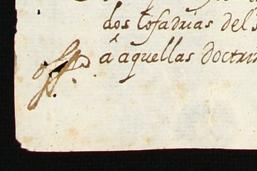 dos Cofadrias del
á aquellas doctrin